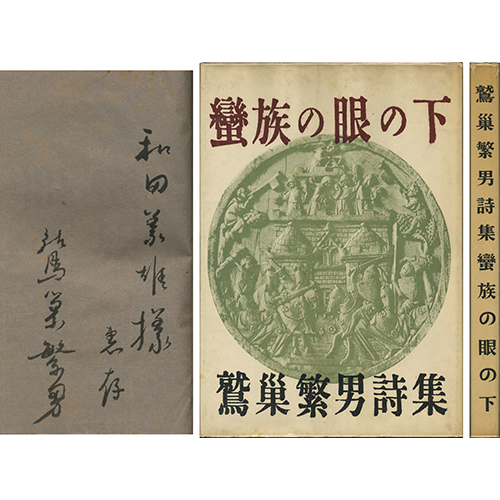 和田義雄様
恵存
鷲巣繁男
蠻族の眼の下
鷲巣繁男詩集
鷲巣繁男詩集蠻族の眼の下